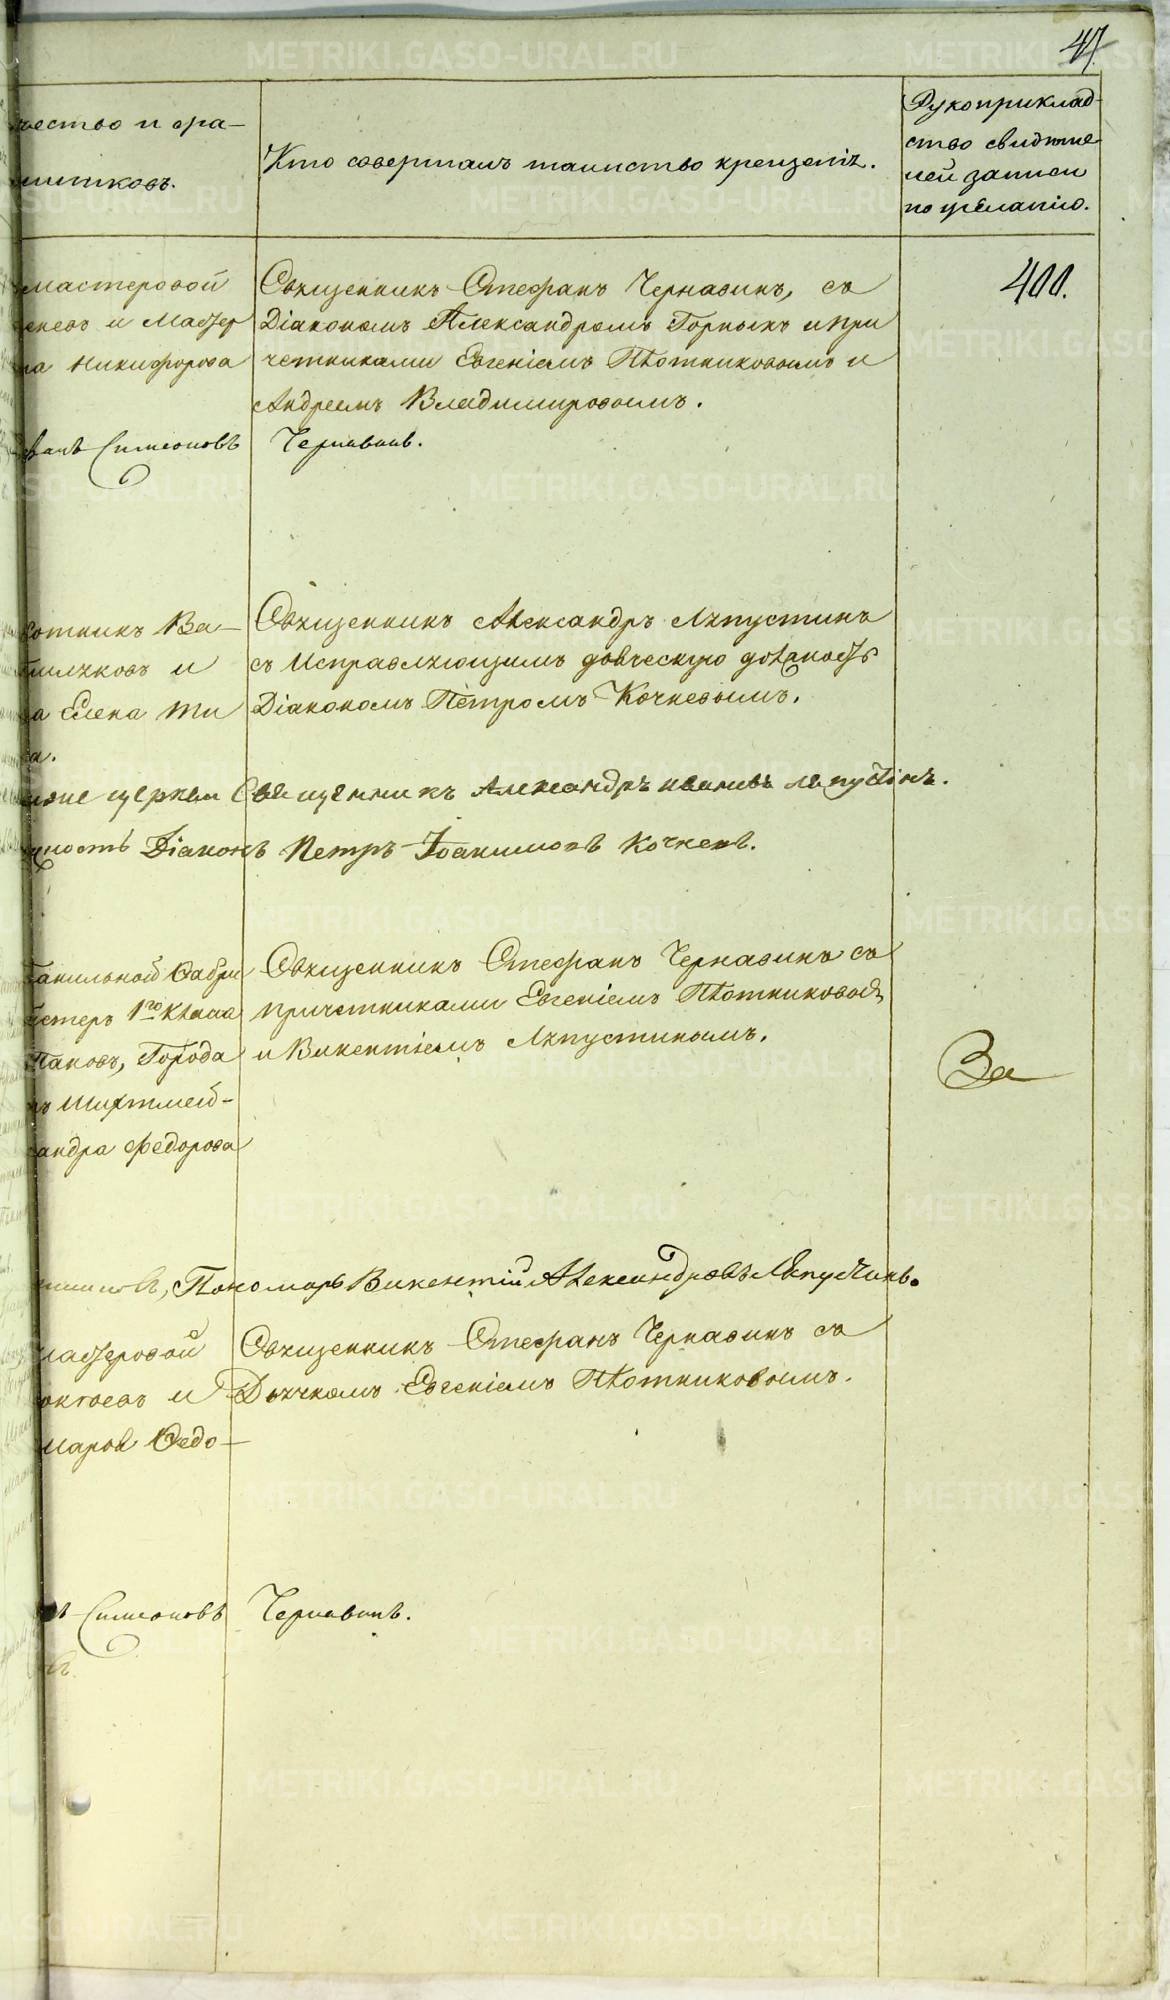 47.
чество и фа-
миликовъ.
Кто совершалъ таинство крещенія.
Рукоприклад-
ство свидѣте
лей записи
по желанію.
400.
мастеровой
и Мастер
на Никифорова
Священникъ Стефанъ Чернавинъ, съ
Діакономъ Александромъ Горныхъ и при
четниками Евгеніемъ Плотниковымъ и
Андреемъ Владимировымъ.
Симеоновъ Чернавинъ.
ботникъ Ва-
и
а Елена Ти
а.
Священникъ Александръ Ляпустинъ
съ Исправляющимъ дьяческую должность
Діакономъ Петромъ Кочневымъ.
церкви Священникъ Александръ Ивановъ Ляпустинъ.
ность Діаконъ Петръ Іоакимовъ Кочневъ.
Фабри
1го класа
Пановъ, Города
ъ Шихтмей-
сандра Федорова
Священникъ Стефанъ Чернавинъ съ
причетниками Евгеніемъ Плотниковым
и Викентіемъ Ляпустинымъ.
За
Пономарь Викентій Александровъ Ляпустинъ.
мастеровой
и
Федо-
Священникъ Стефанъ Чернавинъ съ
Дьячкомъ Евгеніемъ Плотниковымъ.
ъ Симеоновъ Чернавинъ.
METRIKI.GASO-URAL.RU